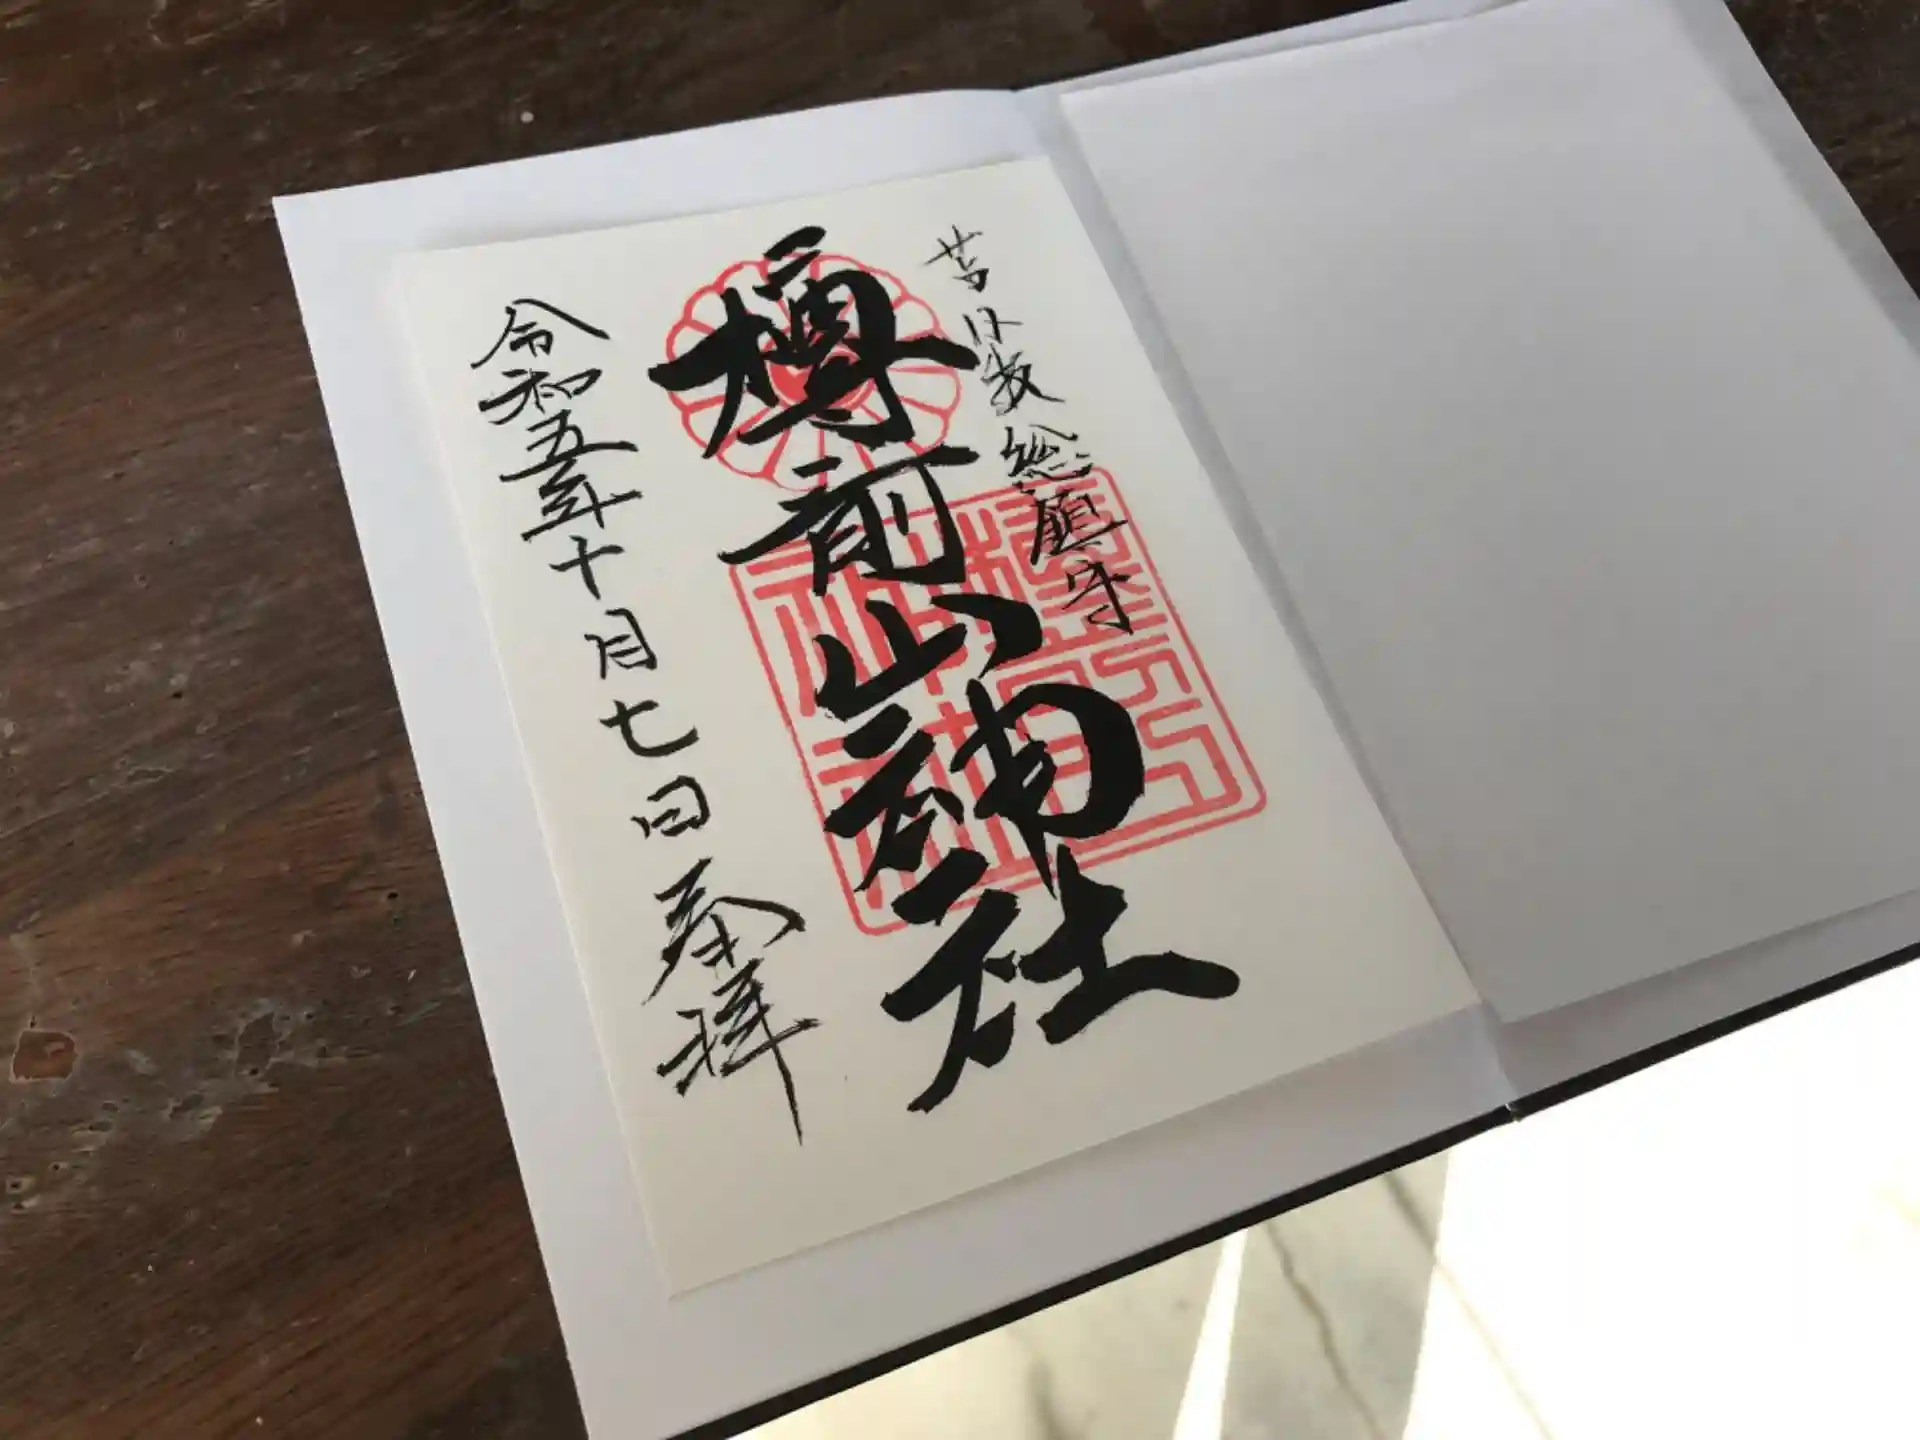 苫小牧総鎮守
樽前山神社
令和五年十月七日奉拝